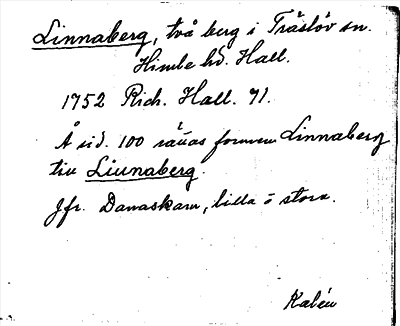 Linnaberg, två berg i Träslöv sn.
Himle hd. Hall.
1752 Rich. Hall. 71.
Å sid. 100 rättas formen Linnaberg
till Liunaberg.
Jfr. Danaskam, lilla o stora.
Kalén